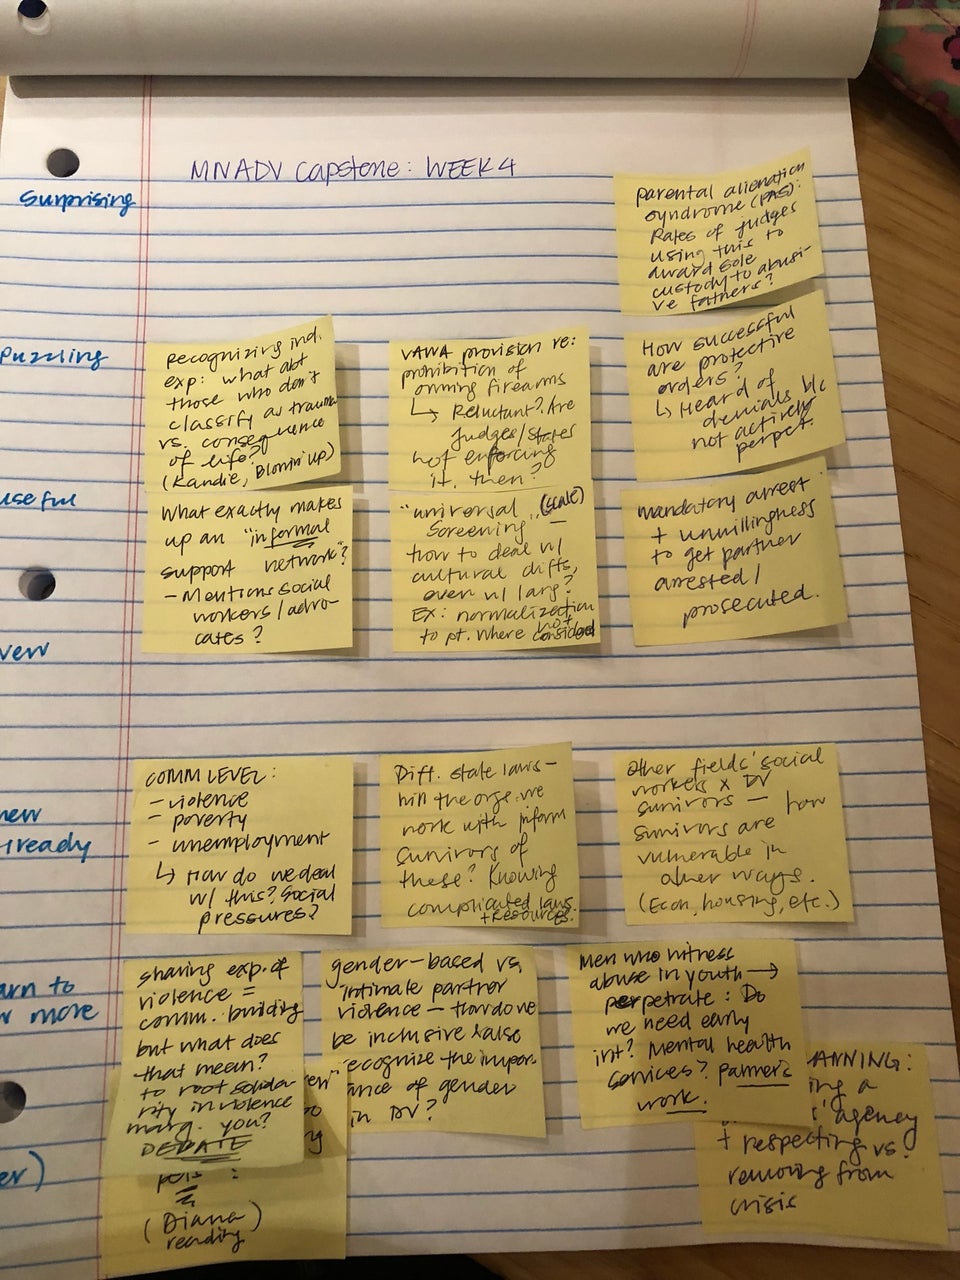 MNADV Capstone: WEEK 4
Surprising
parental alienation
syndrome (PAS):
Rates of judges
using this to
award sole
custody to abusi-
ve fathers?
Puzzling
Recognizing ind.
exp: what abt
those who don't
classify as trauma
vs. consequence
of life?
(Kandie, Blowin' Up)
VAWA provision re:
prohibition of
owning firearms
↳ Reluctant? Are
judges/states
not enforcing
it, then?
How successful
are protective
orders?
↳ Heard of
denials b/c
not actively
perpet.
useful
What exactly makes
up an "informal
support network"?
- Mentions social
workers / advo-
cates?
"universal (scale)
screening" —
how to deal w/
cultural diffs,
even w/ lang?
EX: normalization
to pt. where not
considered
mandatory arrest
+ unwillingness
to get partner
arrested /
prosecuted.
new
already
COMM LEVEL:
- violence
- poverty
- unemployment
↳ How do we deal
w/ this? Social
pressures?
Diff. state laws -
will the orgs we
work with inform
survivors of
these? Knowing
complicated laws
+ resources.
Other fields' social
workers x DV
survivors — how
survivors are
vulnerable in
other ways.
(Econ, housing, etc.)
arn to
more
sharing exp. of
violence =
comm. building
but what does
that mean?
to root solida-
rity in violence
marg. you?
DEBATE
(Diana
reading)
gender-based vs.
intimate partner
violence — How do we
be inclusive & also
recognize the impor-
ance of gender
in DV?
Men who witness
abuse in youth →
perpetrate: Do
we need early
int? Mental health
services? Palmer's
work.
ANNING:
ing a
agency
+ respecting vs.
removing from
crisis
er)